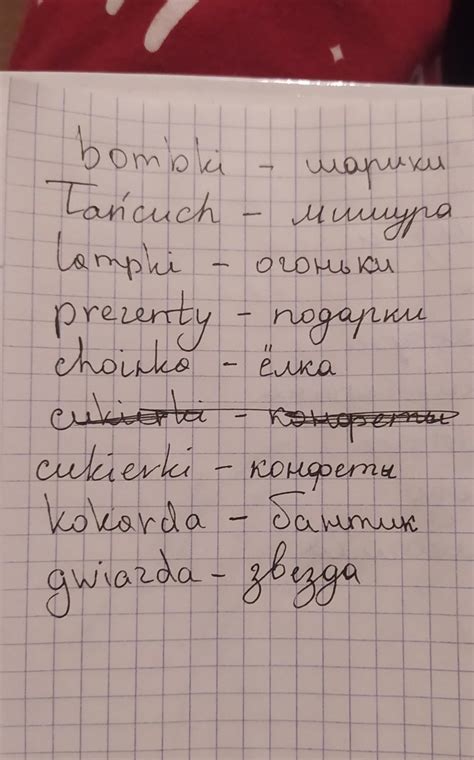 bombki - шарики
Łańcuch - мишура
lampki - огоньки
prezenty - подарки
choinka - ёлка
cukierki - конфеты
cukierki - конфеты
kokarda - бантик
gwiazda - звезда